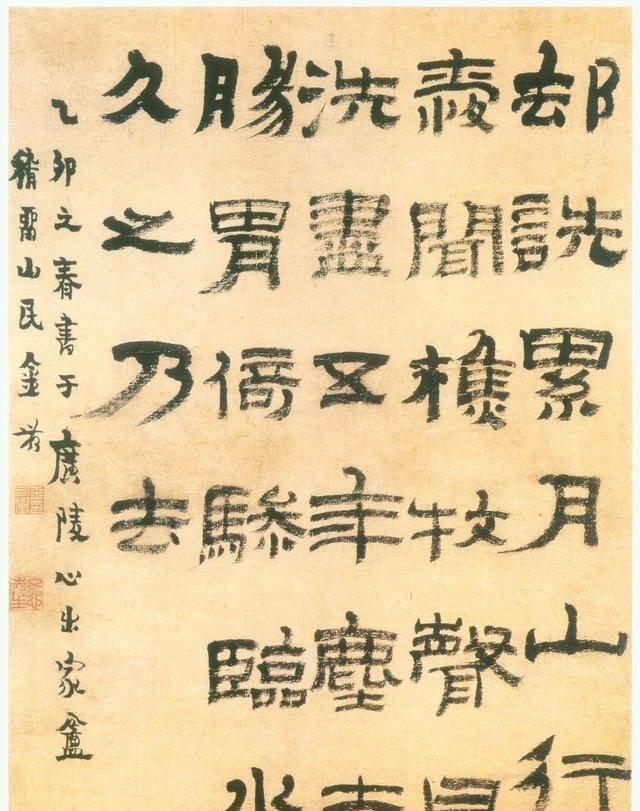 郄詵累月山行
聞樵牧聲曰
洗盡五年塵土
腸胃倚驂臨水
久之乃去
乙卯之春書于廣陵心出家盦
稽留山民金農